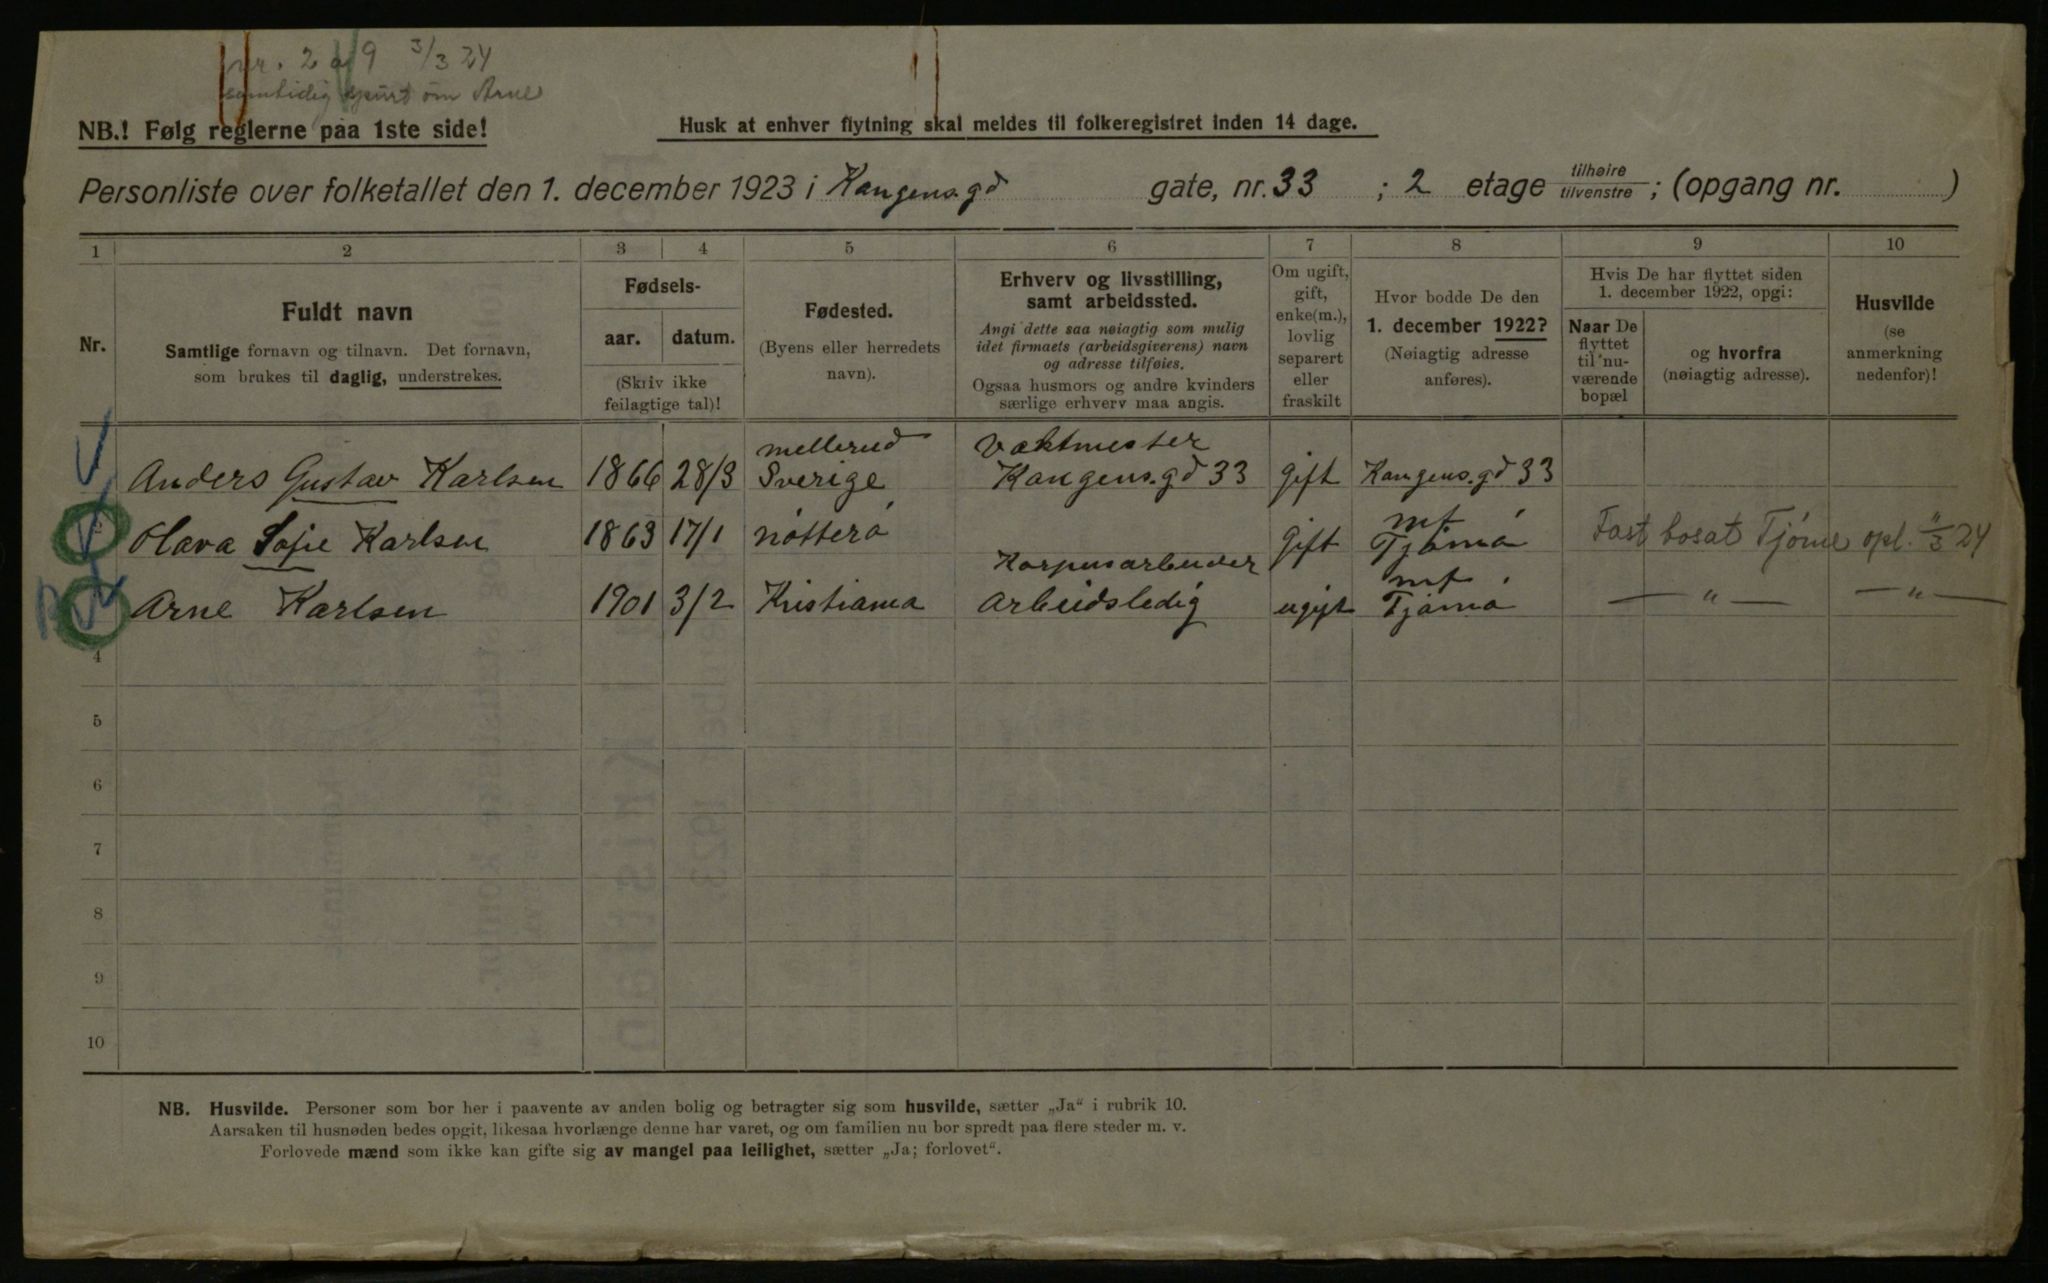 nr. 2 og 9 3/3 24
samtidig spurt om Arne
NB.! Følg reglerne paa 1ste side!
Husk at enhver flytning skal meldes til folkeregistret inden 14 dage.
Personliste over folketallet den 1. december 1923 i Kongens.gd gate, nr. 33 ; 2 etage tilhøire/tilvenstre ; (opgang nr. )
1 2 3 4 5 6 7 8 9 10
Nr.
Fuldt navn
Samtlige fornavn og tilnavn. Det fornavn,
som brukes til daglig, understrekes.
Fødsels-
aar. datum.
(Skriv ikke
feilagtige tal)!
Fødested.
(Byens eller herredets
navn).
Erhverv og livsstilling,
samt arbeidssted.
Angi dette saa nøiagtig som mulig
idet firmaets (arbeidsgiverens) navn
og adresse tilføies.
Ogsaa husmors og andre kvinders
særlige erhverv maa angis.
Om ugift,
gift,
enke(m.),
lovlig
separert
eller
fraskilt
Hvor bodde De den
1. december 1922?
(Nøiagtig adresse
anføres).
Hvis De har flyttet siden
1. december 1922, opgi:
Naar De
flyttet
til nu-
værende
bopæl
og hvorfra
(nøiagtig adresse).
Husvilde
(se
anmerkning
nedenfor)!
mellerud Vaktmester
Anders Gustav Karlsen 1866 28/3 Sverige Kongens.gd 33 gift Kongens.gd 33
mf
2 Olava Sofie Karlsen 1863 17/1 nótteró gift Tjómó Fast bosat Tjóme opl. 11/3 24
Korpusarbeider mf
Arne Karlsen 1901 3/2 Kristiania Arbeidsledig ugift Tjómó — " — — " —
4
5
6
7
8
9
10
NB. Husvilde. Personer som bor her i paavente av anden bolig og betragter sig som husvilde, sætter „Ja“ i rubrik 10.
Aarsaken til husnøden bedes opgit, likesaa hvorlænge denne har varet, og om familien nu bor spredt paa flere steder m. v.
Forlovede mænd som ikke kan gifte sig av mangel paa leilighet, sætter „Ja; forlovet“.